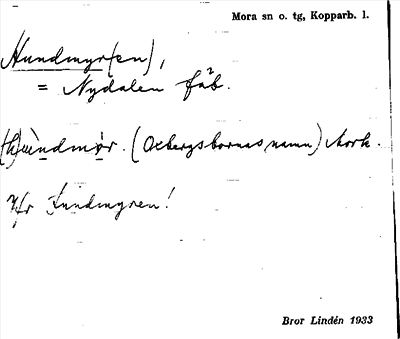 Mora sn o. tg, Kopparb. l.
Hundmyr(en),
= Nydalen fäb.
(h)ùndmỳr. (Oxbergsbornas namn) Mork.
Jfr Lundmyren!
Bror Lindén 1933